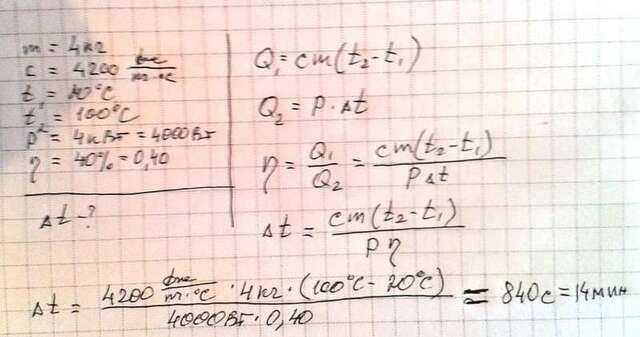 m = 4кг
c = 4200 Дж/кг·°C
t₁ = 20°C
t₂ = 100°C
P = 4кВт = 4000Вт
η = 40% = 0,40
Δt - ?
Q₁ = cm(t₂-t₁)
Q₂ = P·Δt
η = Q₁/Q₂ = cm(t₂-t₁)/PΔt
Δt = cm(t₂-t₁)/Pη
Δt = 4200 Дж/кг·°C · 4кг · (100°C - 20°C) / 4000Вт · 0,40 = 840с = 14мин